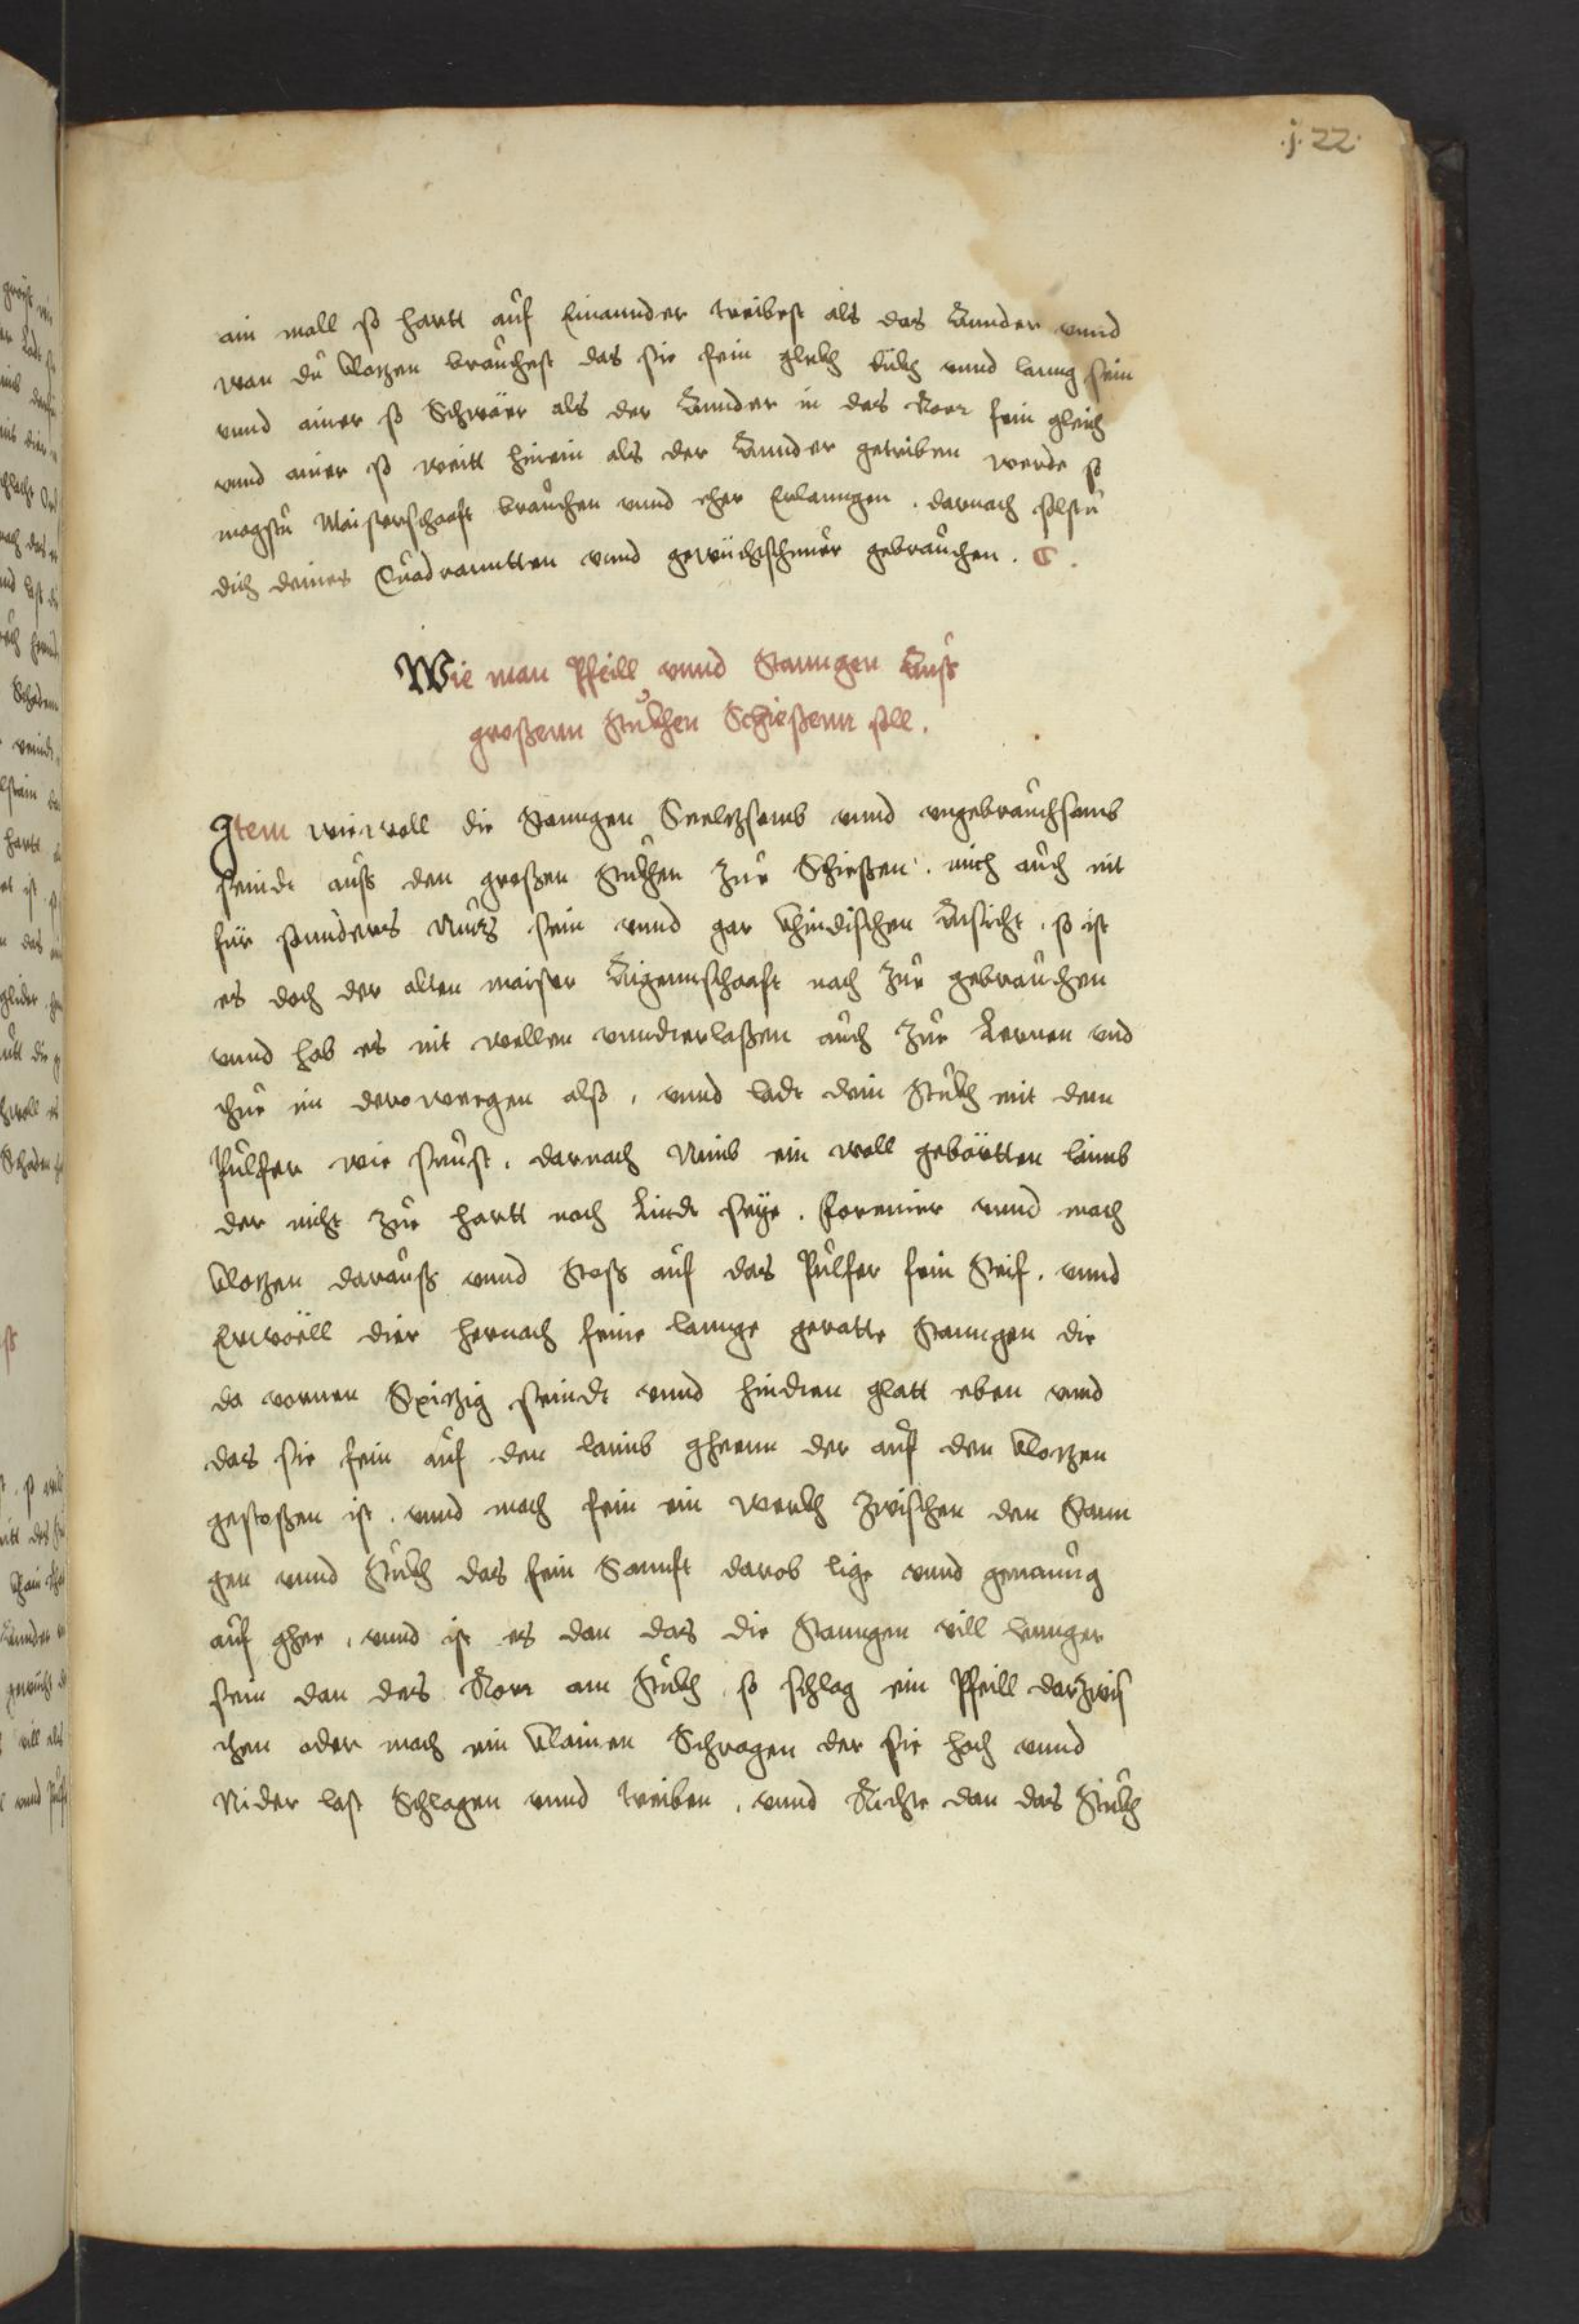 .j.22.
ain mall so hartt auf Einannder treibest als das Annder vnnd
wan du klotzen brauchest das sie fein gleich dickh vnnd lanng sein
vnnd ainer so Schwär als der Annder in das Rorr fein gleich
vnnd ainer so weitt hinein als der Annder getriben werde so
magstu Maisterschaft brauchen vnnd eher Erlanngen . darnach solstu
dich deines Quadrannten vnnd gewüchtschnur gebrauchen .
Wie man Pfeill vnnd Stanngen Auss
großenn Stuckhen Schießenn soll .
Item wiewoll die Stanngen Seeltzsamb vnnd vngebrauchsamb
seindt auss den großen Stuckhen zur Schießen . mich auch nit
für sonnders Nutz sein vnnd gar khindischen Ansicht . so ist
es doch der alten maister Aigennschaft nach zur gebrauchen
vnnd hab es nit wellen vnnderlaßen auch zur Lernen vnd
thue im derowegen also , vnnd ladt dein Stuckh mit dem
Pulfer wie sunst . darnach Nimb ein woll gebörtten laimb
der nicht zur hartt noch Lindt seye . formier vnnd mach
klotzen darauss vnnd Stoss auf das Pulfer fein Steif . vnnd
Erwöll dier hernach feine lannge geratte Stanngen die
da vornen Spitzig seindt vnnd hinden glatt eben vnnd
das sie fein auf den laimb gheenn der auf den klotzen
gestoßen ist . vnnd mach fein ein werckh zwischen den Stann
gen vnnd Stuckh das fein Sannft darob lige vnnd genaung
auf ghee , vnnd ist es dan das die Stanngen vill lennger
sein dan das Rorr am Stuckh , so schlag ein Pfeill darzwis
chen oder mach ein klainen Schragen der sie hoch vnnd
Nider last Schlagen vnnd treiben , vnnd Richte dan das Stuckh